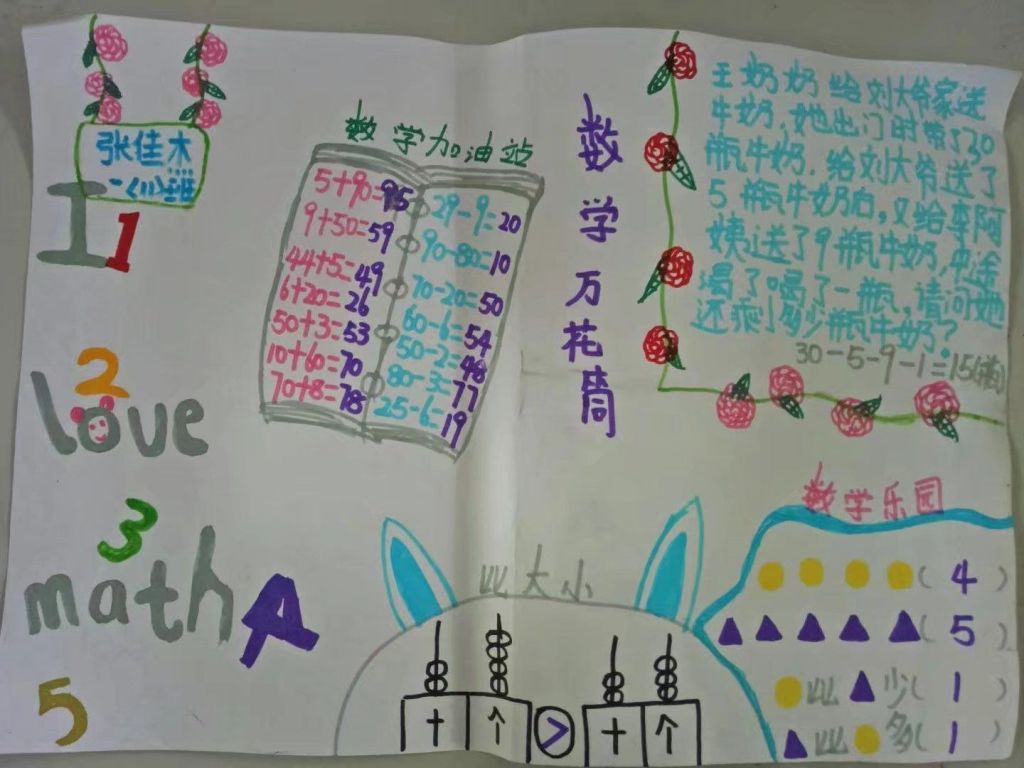 张佳木
一(11)班
I 1
2
love
3
math 4
5
数学加油站
5+90=95
9+50=59
44+5=49
6+20=26
50+3=53
10+60=70
70+8=78
29-9=20
90-80=10
70-20=50
60-6=54
50-2=48
80-3=77
25-6=19
数学万花筒
王奶奶给刘大爷家送
牛奶,她出门时带了30
瓶牛奶.给刘大爷送了
5瓶牛奶后,又给李阿
姨送了9瓶牛奶,中途
渴了喝了一瓶,请问她
还剩多少瓶牛奶?
30-5-9-1=15(瓶)
比大小
十 个 > 十 个
数学乐园
( 4 )
( 5 )
比 少( 1 )
比 多( 1 )